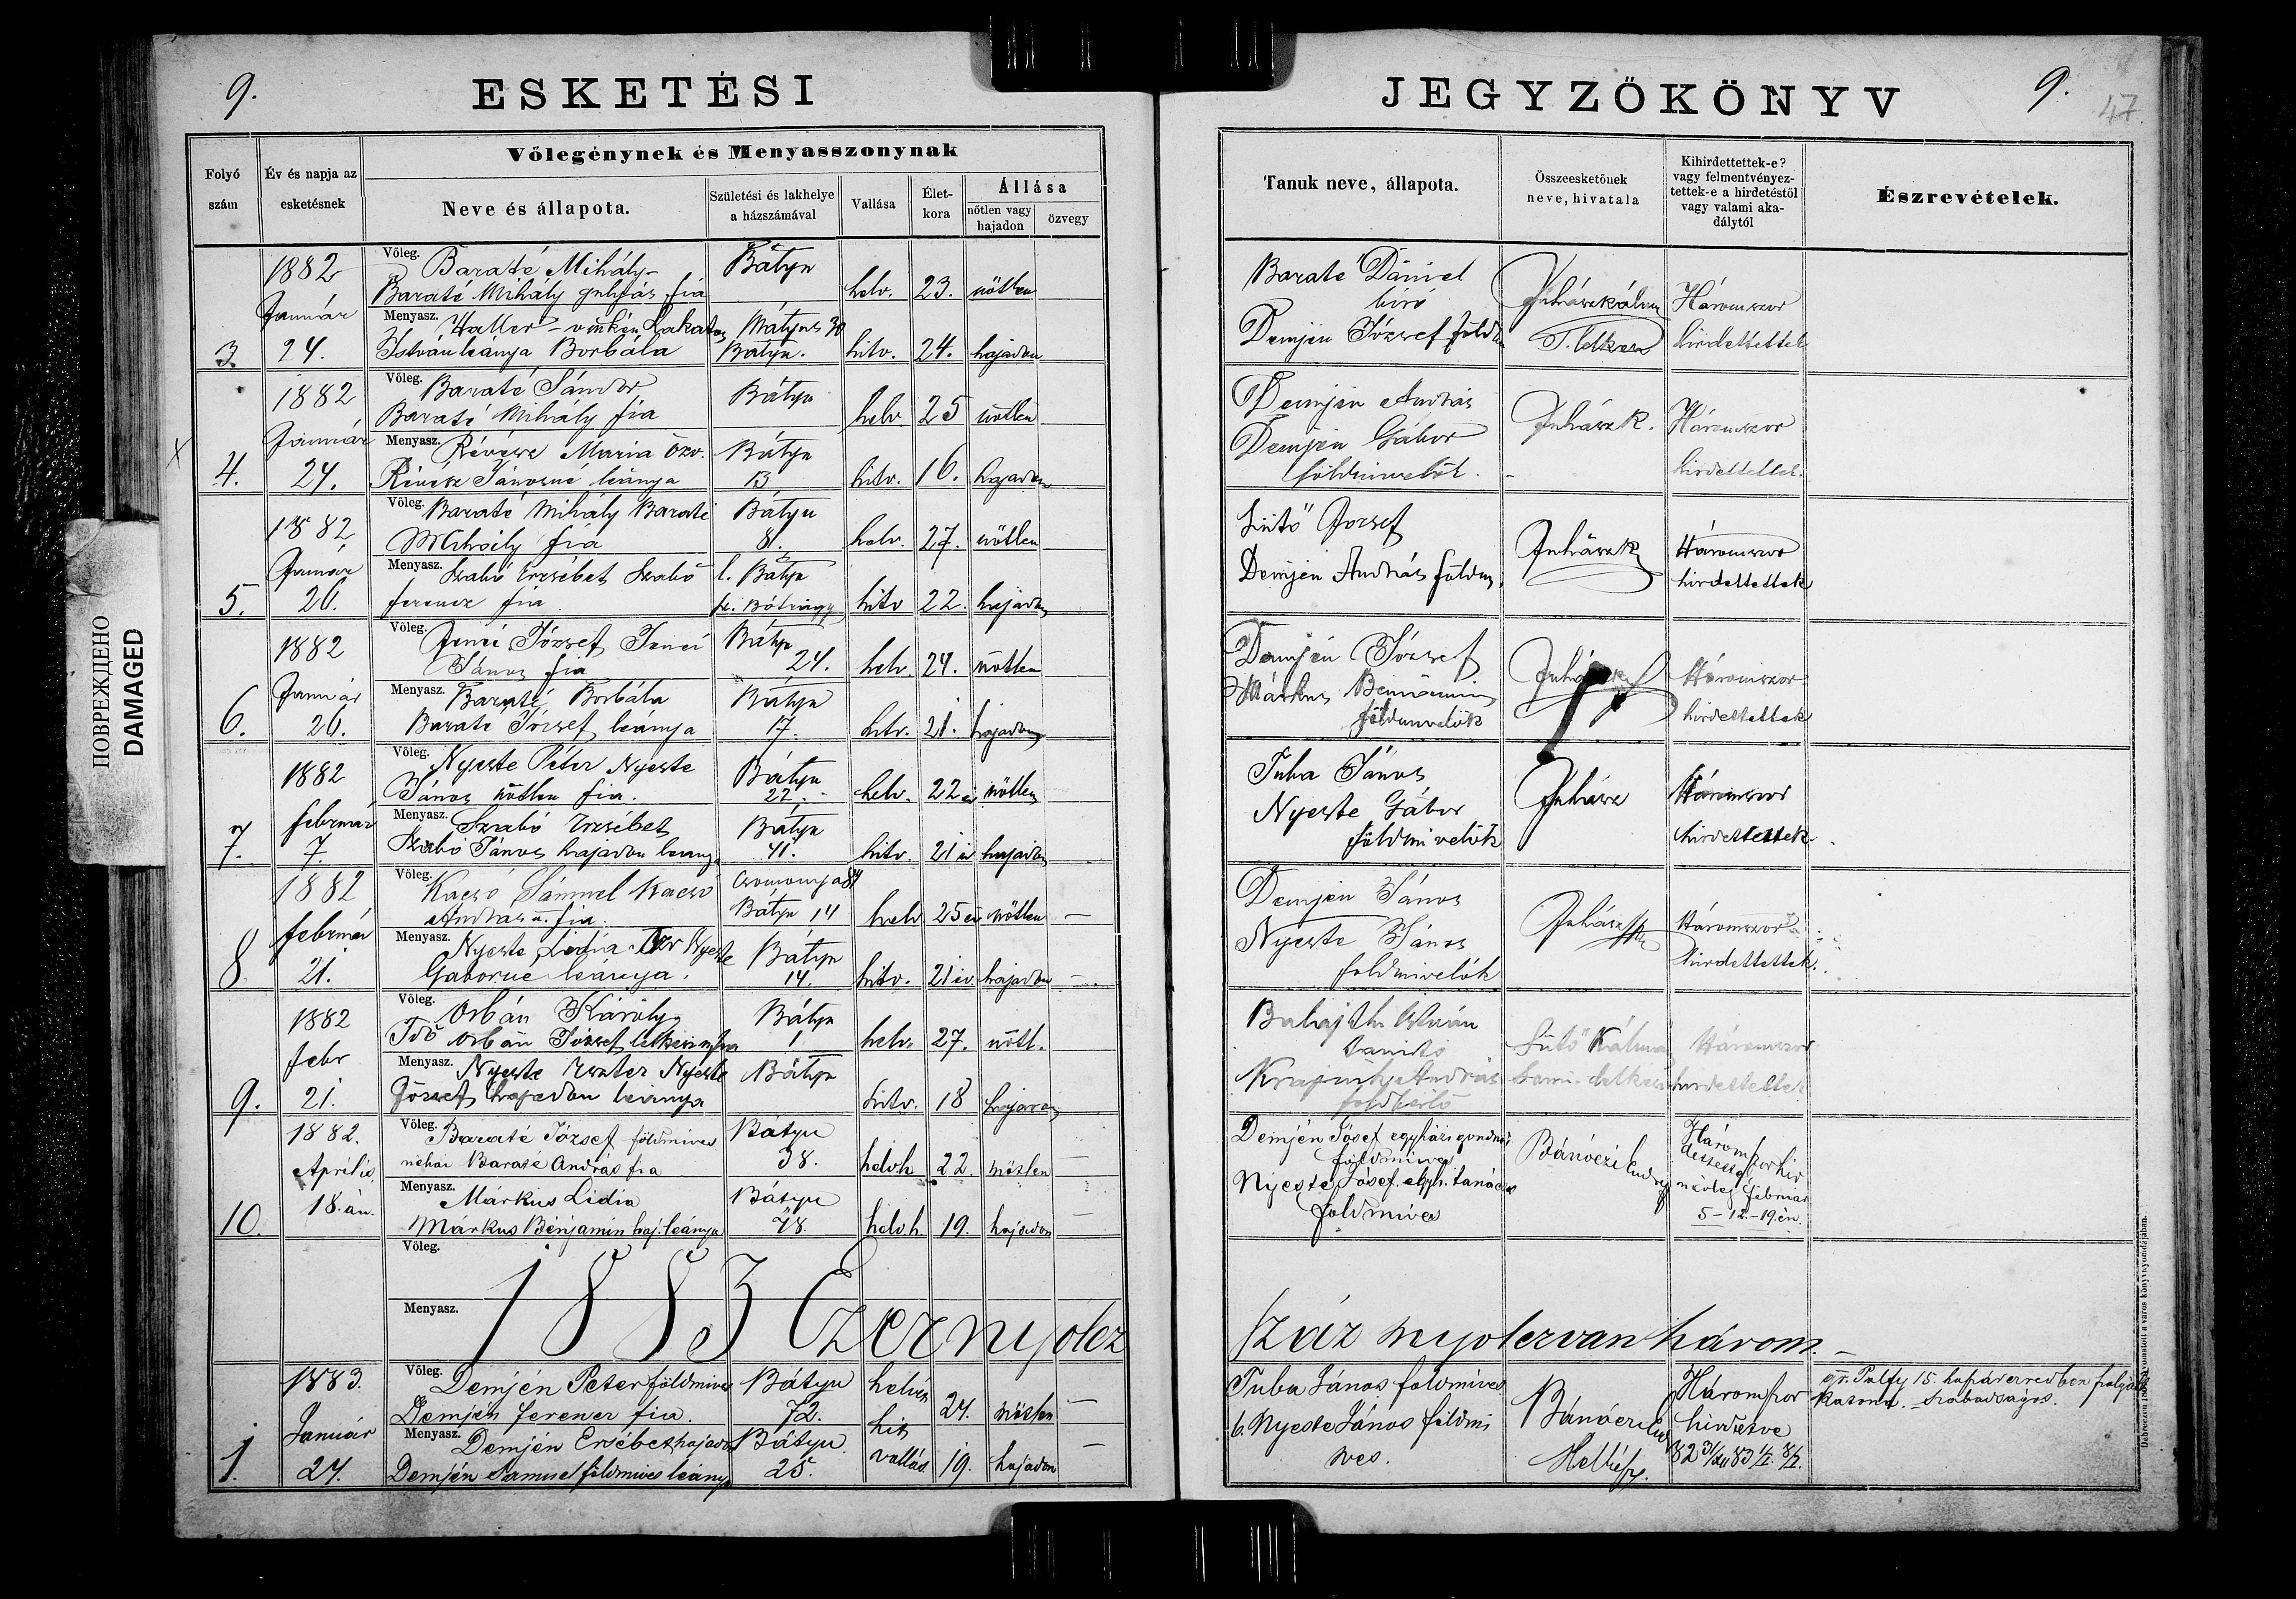 9.
ESKETÉSI
Vőlegénynek és Menyasszonynak
Folyó szám
Év és napja az esketésnek
Neve és állapota.
Születési és lakhelye a házszámával
Vallása
Élet-kora
Állása
nőtlen vagy hajadon
özvegy
3.
1882 Január 24.
Vőleg. Baraté Mihály
Baraté Mihály gulyás fia
Bátyu
helv. 23. nőtlen
Menyasz. Haller Lakatos
István leánya Borbála
Bátyu.
hitv. 24. hajadon
4.
1882 Január 24.
Vőleg. Baraté Sándor
Baraté Mihály fia
Bátyu
helv 25 nőtlen
Menyasz. Révész Maria özv.
Révész Jánosné leánya
Bátyu
13
hitv. 16. hajadon
5.
1882 Január 26.
Vőleg. Baraté Mihály Baraté
Mihály fia
Bátyu
81.
helv. 27. nőtlen
Menyasz. Szabó Erzsébet Szabó
ferencz fia
l. Bátyu
sz. Bótrágy
hitv 22. hajadon
6.
1882 Január 26.
Vőleg. Jenei József Jenei
János fia
Bátyu
24.
helv. 24. nőtlen
Menyasz. Baraté Borbála
Baraté József leánya
Bátyu
17.
hitv. 21. hajadon
7.
1882 február 7.
Vőleg. Nyeste Péter Nyeste
János nőtlen fia.
Bátyu
22.
helv. 22 év nőtlen
Menyasz. Szabó Erzsébet
Szabó János hajadon leánya
Bátyu
41.
hitv. 21 év hajadon
8
1882 február 21.
Vőleg. Kacsó Sámuel Kacsó
András n. fia.
Csomonya 84
Bátyu 14
helv 25 év nőtlen
Menyasz. Nyeste Lidia Özv Nyeste
Gáborné leánya.
Bátyu
14.
hitv. 21 év hajadon
9.
1882 febr 21.
Vőleg. Orbán Károly
Idő Orbán József lelkész n fia
Bátyu
1
helv. 27. nőtl.
Menyasz. Nyeste Eszter Nyeste
József hajadon leánya
Bátyu
hitv. 18 hajadon
10.
1882. Április 18.án.
Vőleg. Baraté József földmives
néhai Baraté András fia
Bátyu
38.
helv.h 22. nőtlen
Menyasz. Márkus Lidia
Márkus Bénjamin haj. leánya
Bátyu
78.
helv.h. 19. hajadon
Vőleg.
Menyasz.
1883 Ezernyolcz
1.
1883. Január 24.
Vőleg. Demjén Péter földmives
Demjén ferencz fia.
Bátyu
72.
helv. hit vallás
24. nőtlen
Menyasz. Demjén Ersébet hajadon
Demjén Samuel földmives leánya
Bátyu.
25.
19. hajadon
JEGYZŐKÖNYV
9.
47.
Tanuk neve, állapota.
Összeesketőnek neve, hivatala
Kihirdettettek-e? vagy felmentvényez-tettek-e a hirdetéstől vagy valami aka-dálytól
Észrevételek.
Baraté Dániel
biró
Demjén József földm
Juhász Kálmán
T. lelkész
Háromszor
hirdettettek
Demjén András
Demjén Gábor
földmivelők.
Juhász K.
Háromszor
hirdettettek.
Sütő József
Demjén András földm.
Juhász K
Háromszor
hirdettettek
Demjén József
Márkus Beniamin
földmivelők
Juhász K
Háromszor
hirdettettek
Tuba János
Nyeste Gábor
földmivelők
Juhász
Háromszor
hirdettettek
Demjén János
Nyeste János
földmivelők
Juhász K
Háromszor
hirdettettek.
Balajthi István
tanitó
András
Sütő Kálmán
Háromszor
hirdettettek
Demjén Jósef egyházi gondnok
földmives
Nyeste Jósef. egyh. tanácsos
földmives
Bánóczi Endre
Háromszor hir
dettettek
névleg február
5-12.-19.én.
száz nyolczvanhárom.
Tuba János földmives
b. Nyeste János földmi
ves.
Bánóczi
Helv. lp.
Háromszor
hirdetve
82 31/XII 83 1/I. 8/I.
Pálfy 15.
Katona. szabadságos.
Debreczen nyomatott a város könyvnyomdájában.
ПОВРЕЖДЕНО
DAMAGED